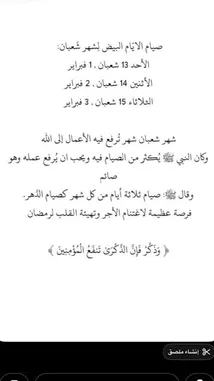 صيام الايّام البيض لِشهر شَعبان:
الأحد 13 شعبان ، 1 فبراير
الأثنين 14 شعبان ، 2 فبراير
الثلاثاء 15 شعبان ، 3 فبراير
شهر شعبان شهر تُرفع فيه الأعمال إلى الله
وكان النبي ﷺ يُكثر من الصيام فيه ويحب ان يُرفع عمله وهو
صائم
وقال ﷺ: صيام ثلاثة أيام من كل شهر كصيام الدَهر.
فرصة عظيمة لاغتنام الأجر وتهيئة القلب لرمضان
﴿ وَذَكِّرْ فَإِنَّ الذِّكْرَىٰ تَنفَعُ الْمُؤْمِنِينَ ﴾
إنشاء ملصق